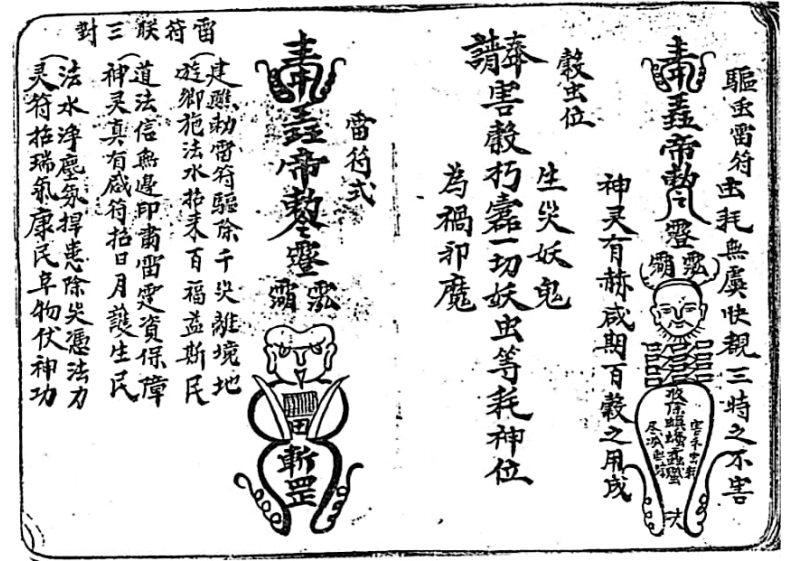 驅虫雷符
虫耗無虞快覩三時之不害
神灵有赫咸期百穀之用成
帝勅
靈
穀虫位
請
害穀朽蠹一切妖虫等耗神位
生災妖鬼
為禍邪魔
雷符式
帝勅
靈
斬罡
雷符联三對
建醮勅雷符驅除千災離境地
旋鄉施法水招来百福益斯民
道法信無邊印肅雷霆資保障
神灵真有感符招日月護生民
法水淨塵氛捍患除災憑法力
灵符招瑞氣康民阜物伏神功